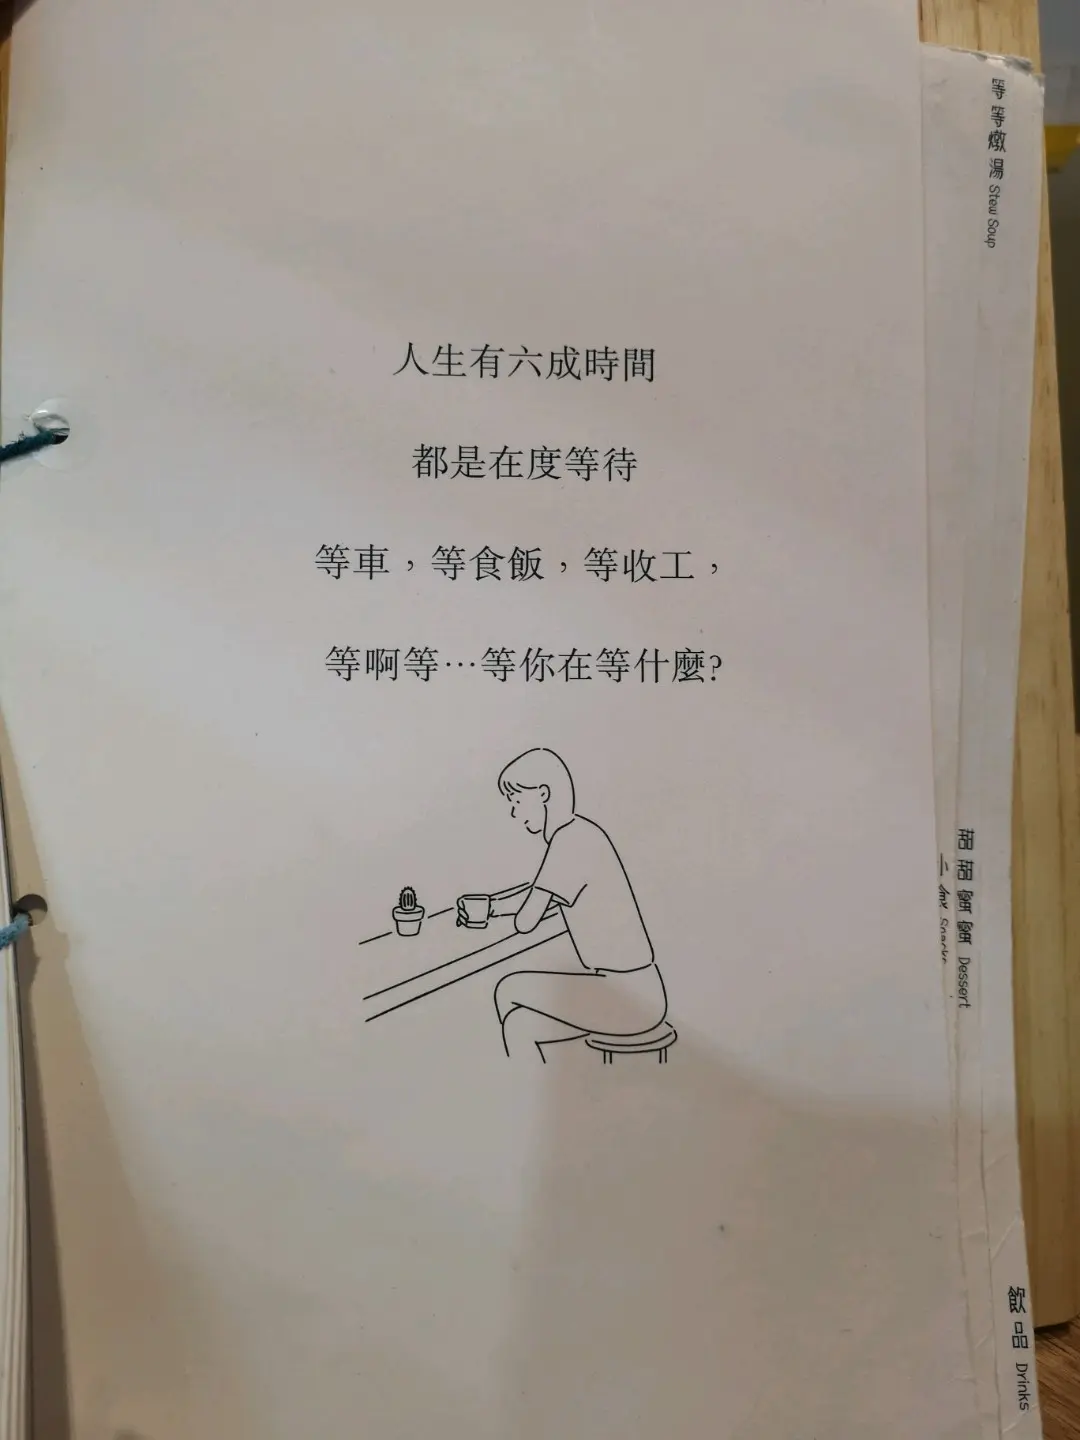 人生有六成時間
都是在度等待
等車，等食飯，等收工，
等啊等…等你在等什麼?
等等燉湯 Stew Soup
甜甜蜜蜜 Dessert
小食 Snacks
飲品 Drinks